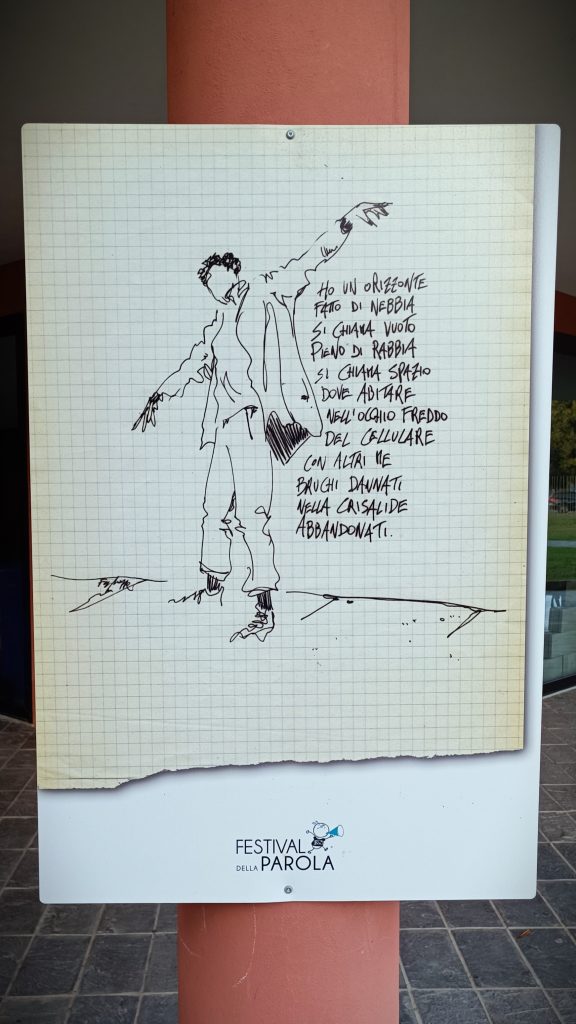 HO UN ORIZZONTE
FATTO DI NEBBIA
SI CHIAMA VUOTO
PIENO DI RABBIA
SI CHIAMA SPAZIO
DOVE ABITARE
NELL'OCCHIO FREDDO
DEL CELLULARE
CON ALTRI ME
BRUCHI DANNATI
NELLA CRISALIDE
ABBANDONATI.
FESTIVAL
DELLA PAROLA